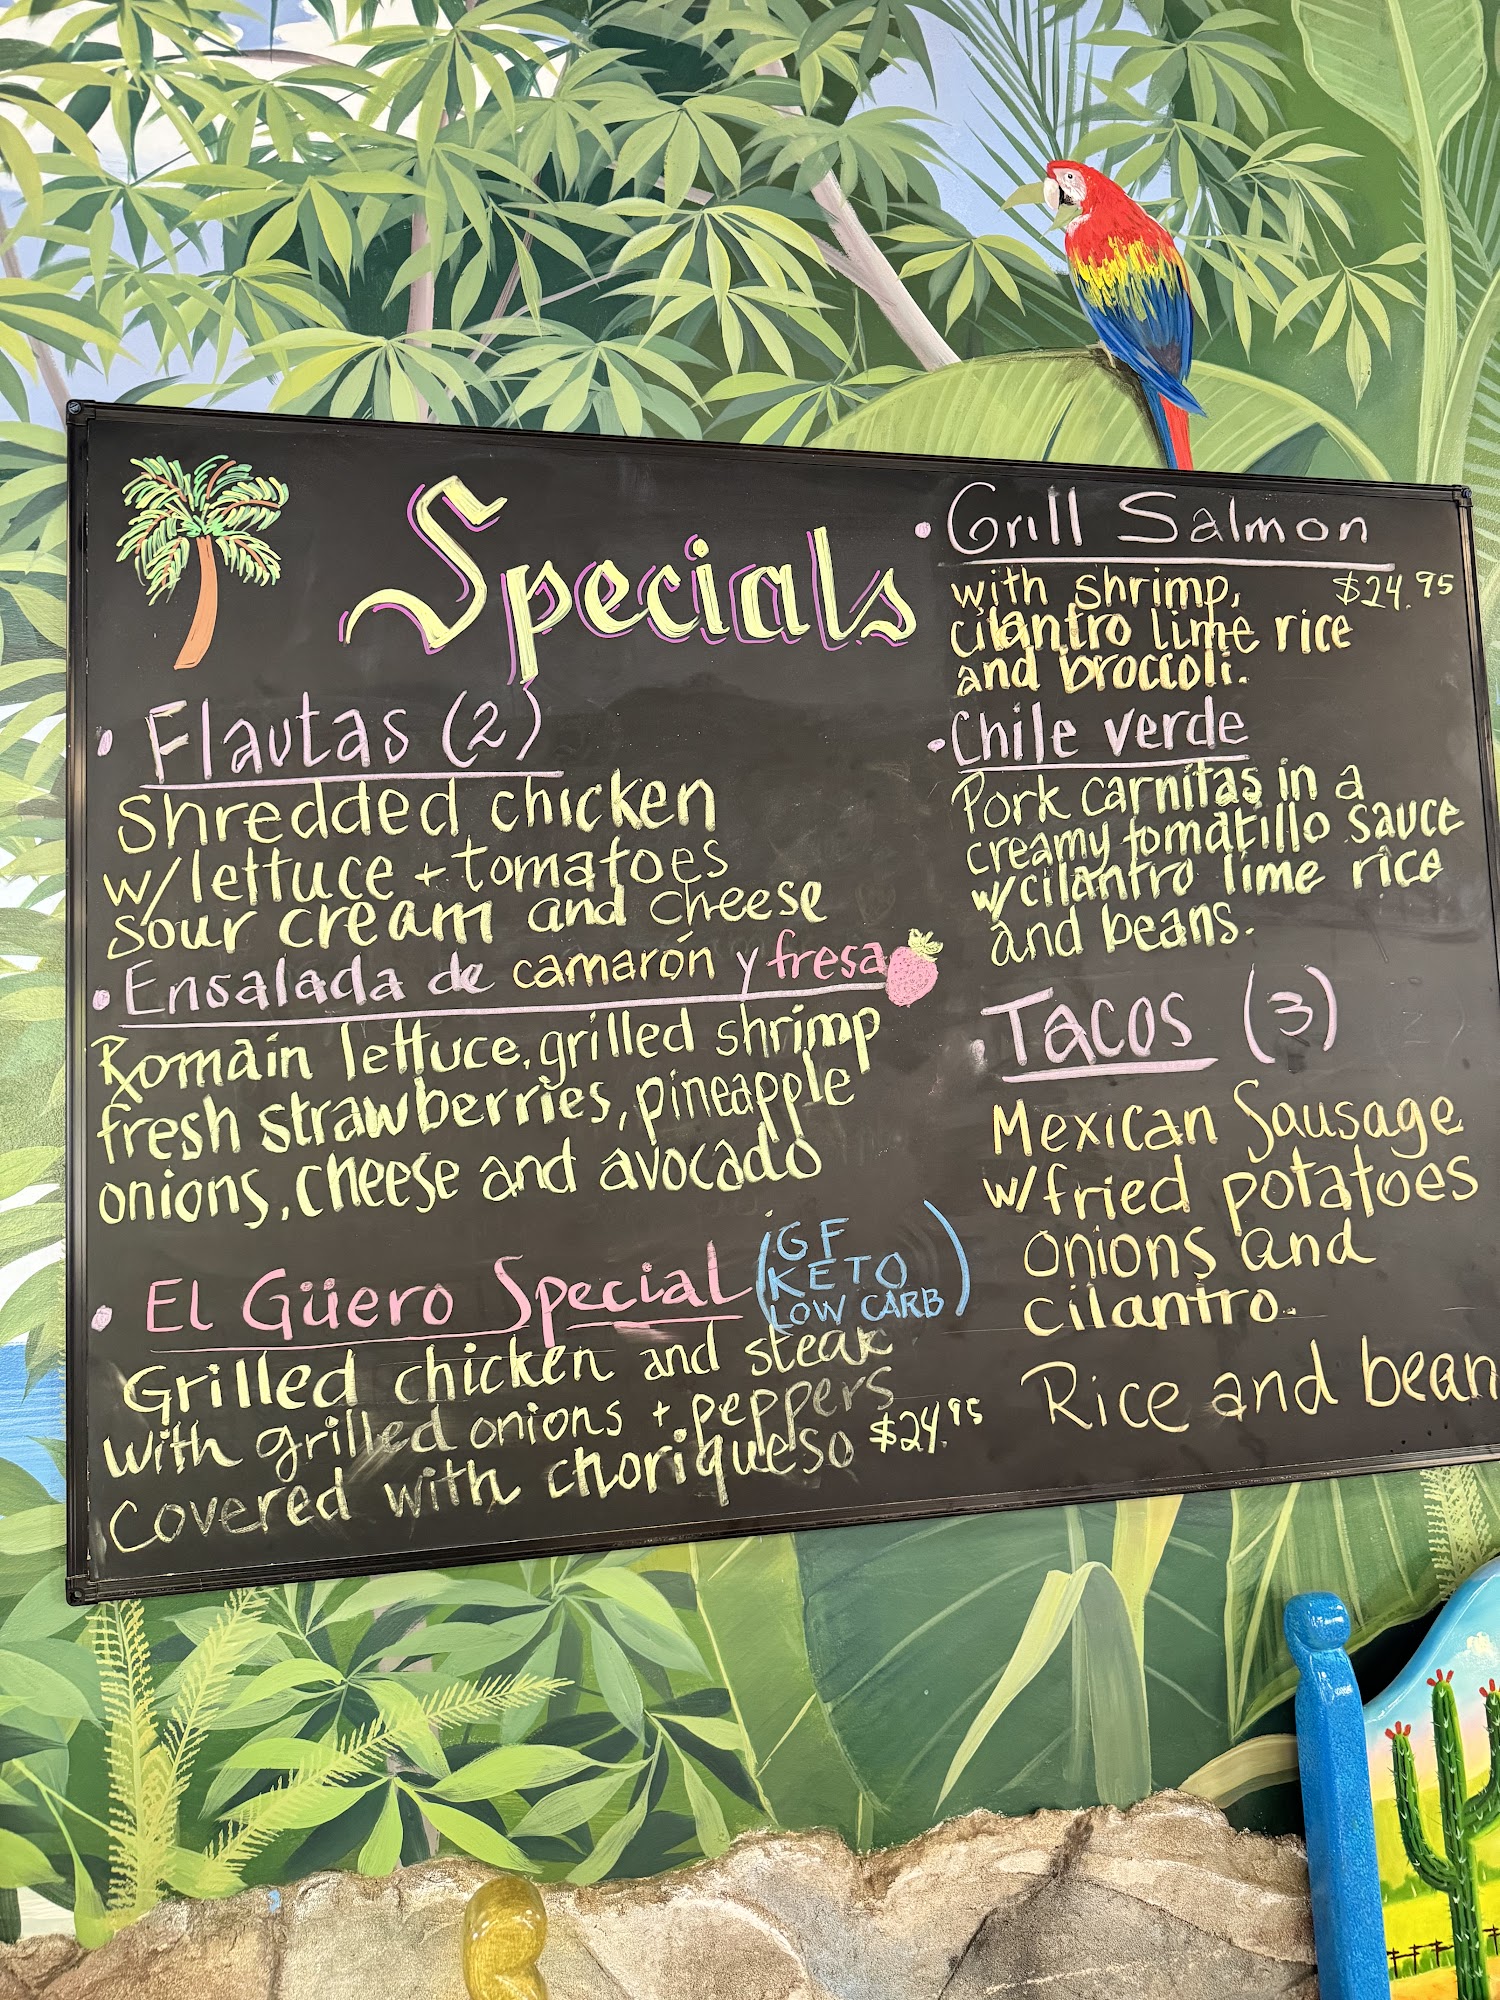 Specials
• Flautas (2)
Shredded chicken
w/lettuce + tomatoes
sour cream and cheese
• Ensalada de camarón y fresa
Romain lettuce, grilled shrimp
fresh strawberries, pineapple
onions, cheese and avocado
• El Güero Special (GF
KETO
LOW CARB)
Grilled chicken and steak
with grilled onions + peppers
covered with choriqueso $24.95
• Grill Salmon
with shrimp, $24.95
cilantro lime rice
and broccoli.
• Chile verde
Pork carnitas in a
creamy tomatillo sauce
w/cilantro lime rice
and beans.
• Tacos (3)
Mexican Sausage
w/fried potatoes
onions and
cilantro.
Rice and bean